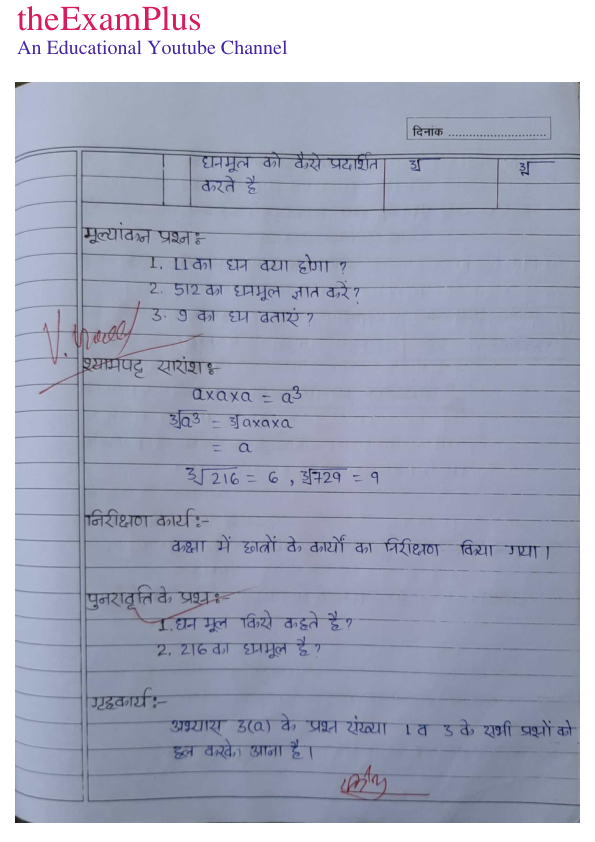 theExamPlus
An Educational Youtube Channel
दिनांक ..............................
घनमूल को कैसे प्रदर्शित ∛
करते है
मूल्यांकन प्रश्न:-
1. 11 का घन क्या होगा ?
2. 512 का घनमूल ज्ञात करें?
3. 9 का घन बताएं ?
श्यामपट्ट सारांश:-
a×a×a = a³
∛a³ = ∛a×a×a
= a
∛216 = 6 , ∛729 = 9
निरीक्षण कार्य:-
कक्षा में छात्रों के कार्यों का निरीक्षण किया गया।
पुनरावृति के प्रश्न:-
1. घन मूल किसे कहते है?
2. 216 का घनमूल है?
गृहकार्य:-
अभ्यास 3(a) के प्रश्न संख्या 1 व 3 के सभी प्रश्नों को
हल करके आना है।